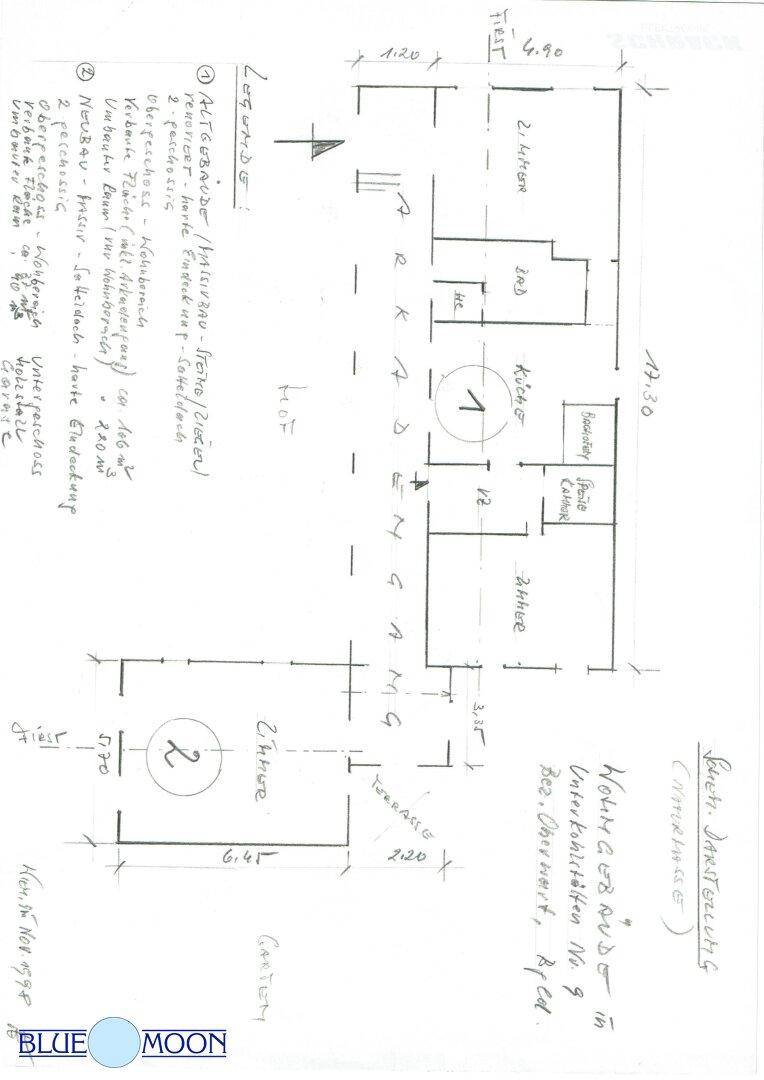 SCHEM. DARSTELLUNG
(NATURMASSE)
WOHNGEBÄUDE in
Unterkohlstätten Nr. 9
Bez. Oberwart, Bgld.
FIRST
4.90
1.20
17.30
ZIMMER
BAD
WC
KÜCHE
1
BACKOFEN
VZ
SPEISE
KAMMER
ZIMMER
ARKADENGANG
HOF
3,35
ZIMMER
2
First
5,70
6.45
2.20
TERRASSE
GARTEN
LEGENDE:
① ALTGEBÄUDE / MASSIVBAU - STEINE / ZIEGEL /
renoviert - harte Eindeckung - Satteldach
2-geschossig
Obergeschoss - Wohnbereich
Verbaute Fläche (inkl. Arkadengang) ca. 106 m²
Umbauter Raum (nur Wohnbereich) " 220 m³
② NEUBAU - MASSIV - Satteldach - harte Eindeckung
2 geschossig
Obergeschoss - Wohnbereich Untergeschoss
verbaute Fläche ca. 37 m² Holzstall
umbauter Raum " 90 m³ Garage
Wien, im Nov. 1998
BLUE MOON